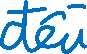 đều